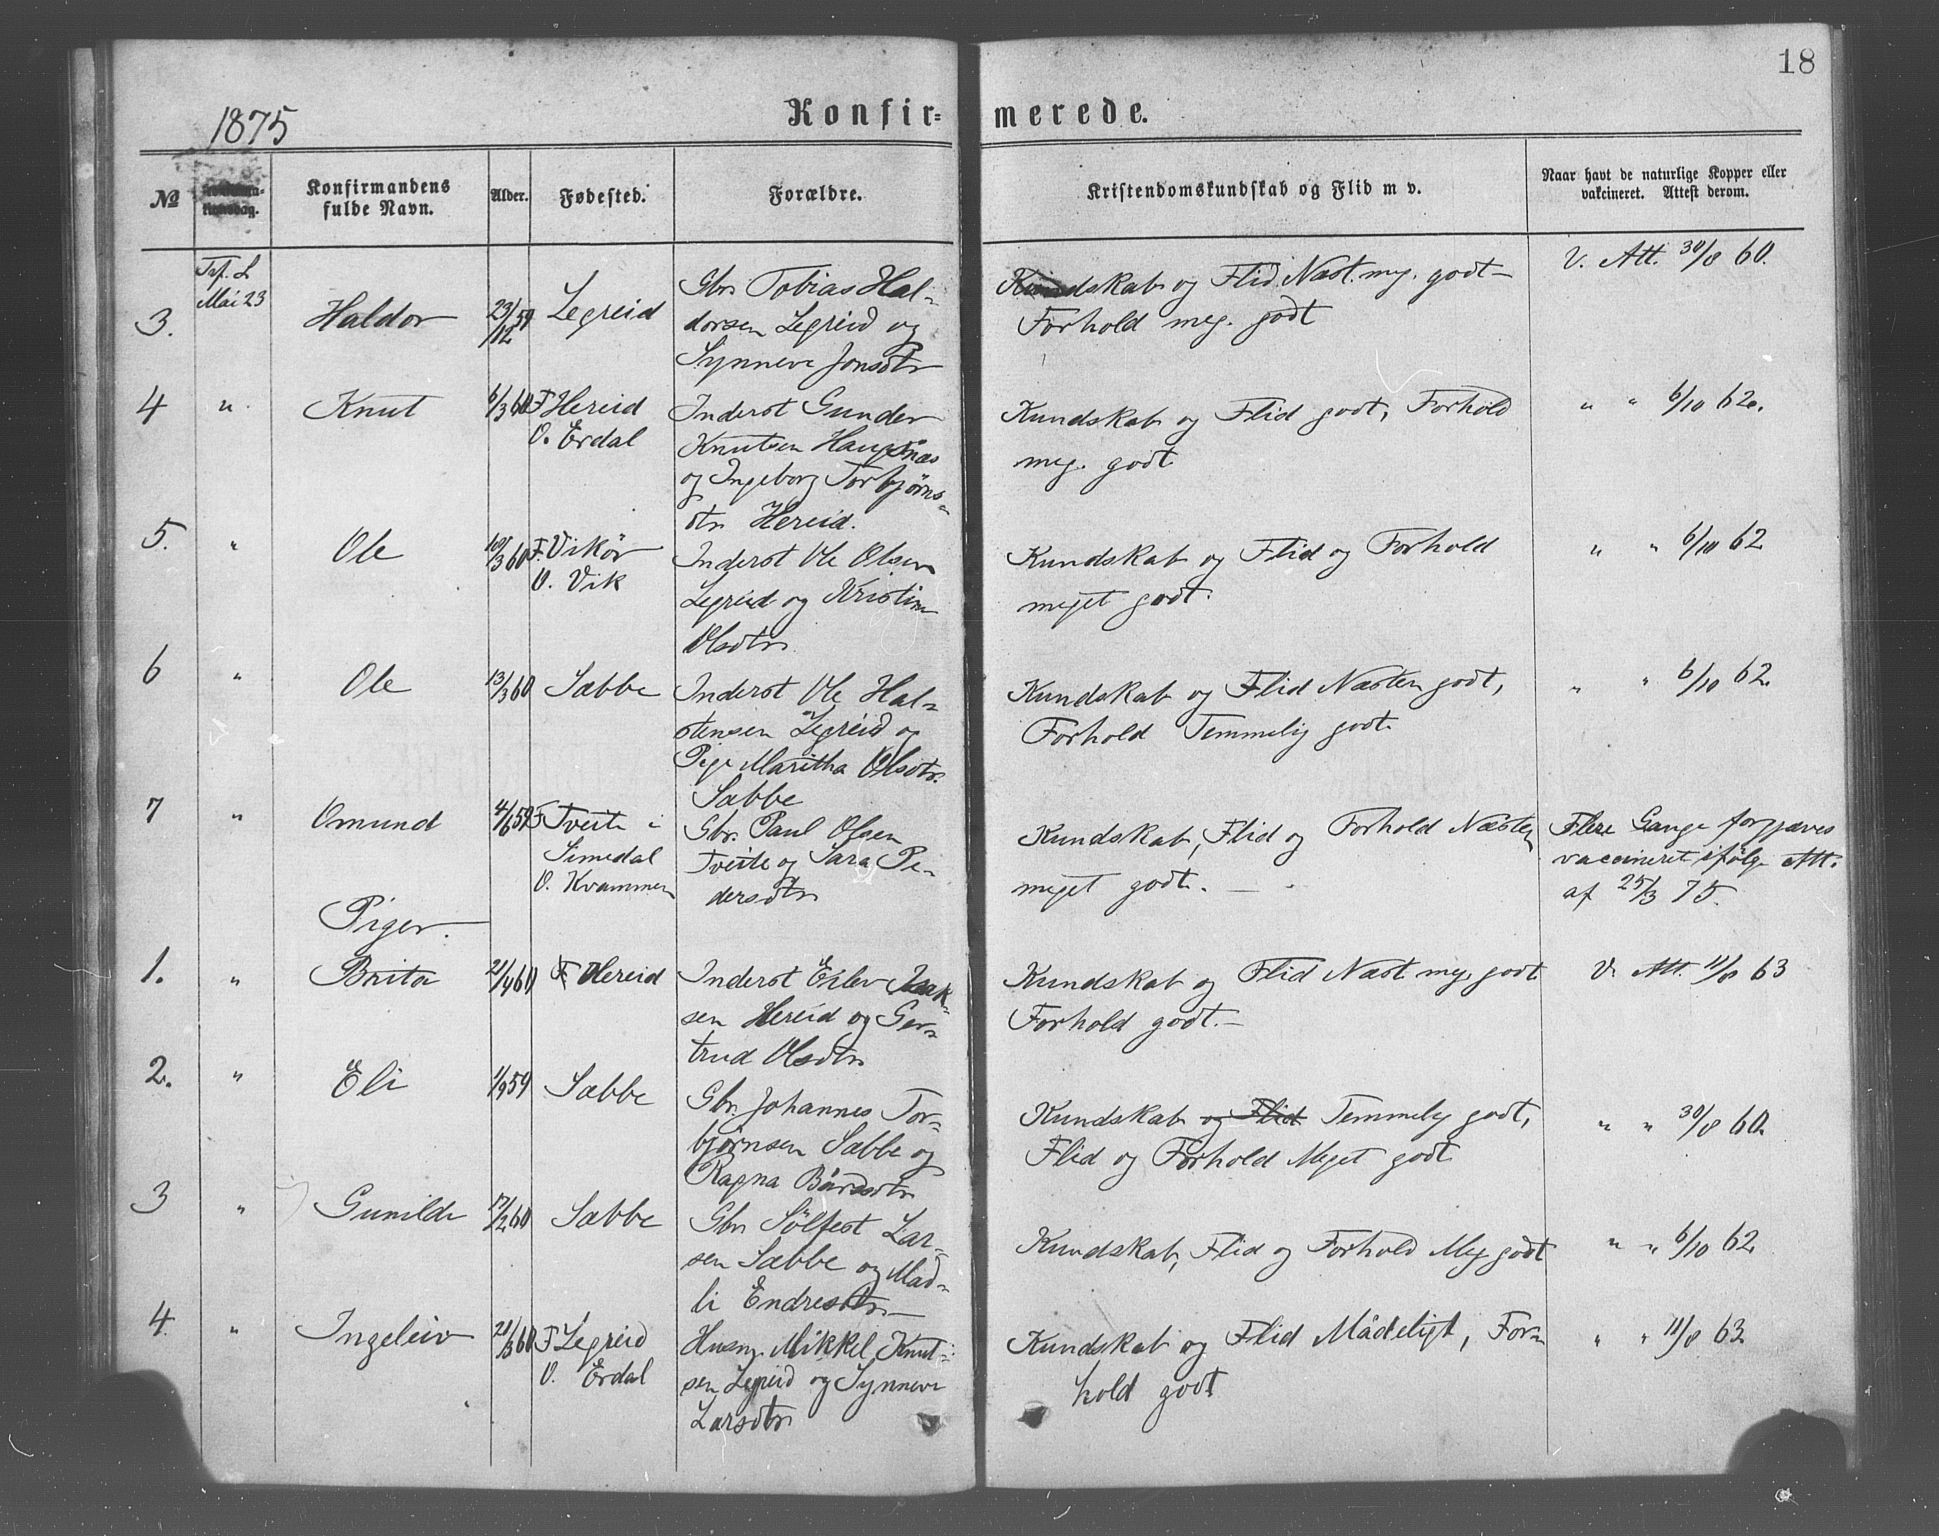 18
1875
Konfir= merede.
№
Konfirmandens fulde Navn.
Alder.
Fødested.
Forældre.
Kristendomskundskab og Flid m v.
Naar havt de naturlige Kopper eller
vakcineret. Attest derom.
Mai 23
3. Haldor 23/12 59 Legreid
Gbr. Tobias Hal-
dorsen Legreid og
Synneve Jonsdtr
Kundskab og Flid Næst. meg. godt
Forhold meg. godt
V. Att. 30/8 60.
4 " Knut 6/3 60 F Hereid
O. Erdal
Inderst Gunder
Knutsen Haugsnæs
og Ingeborg Torbjørns-
dtr Hereid.
Kundskab og Flid godt, Forhold
meg. godt
" " 6/10 62.
5. " Ole 10/3 60 F. Vikør
O. Vik
Inderst Ole Olsen
Legreid og Kristine
Olsdtr
Kundskab og Flid og Forhold
meget godt.
" " 6/10 62
6 " Ole 13/3 60 Sæbbe
Inderst Ole Hal-
stensen Legreid og
Pige Maritha Olsdtr.
Sæbbe
Kundskab og Flid Næsten godt,
Forhold Temmelig godt
" " 6/10 62.
7 " Omund 4/6 59 F Tveite i
Simedal
O. Kvammen
Gbr. Paul Olsen
Tveite og Sara Pe-
dersdtr
Kundskab, Flid og Forhold Næsten
meget godt.
Flere Gange forgjæves
vaccineret ifølge Att.
af 25/3 75.
Piger.
1. " Brita 21/4 60 F Hereid
Inderst Eilev Isak-
sen Hereid og Ger-
trud Olsdtr
Kundskab og Flid Næst meg. godt
Forhold godt.
V. Att. 11/8 63
2. " Eli 1/9 59 Sæbbe
Gbr. Johannes Tor-
bjørnsen Sæbbe og
Ragna Bårdsdtr
Kundskab og Flid Temmelig godt,
Flid og Forhold Meget godt
" " 30/8 60.
3 " Gunilde 17/2 60 Sæbbe
Gbr Sølfest Lar-
sen Sæbbe og Mad-
li Endresdtr
Kundskab, Flid og Forhold Meg godt
" " 6/10 62
4. " Ingeleiv 20/3 60 F Legreid
O. Erdal
Husm. Mikkel Knut-
sen Legreid og Synneve
Larsdtr
Kundskab og Flid Mådeligt, For-
hold godt
" " 11/8 63